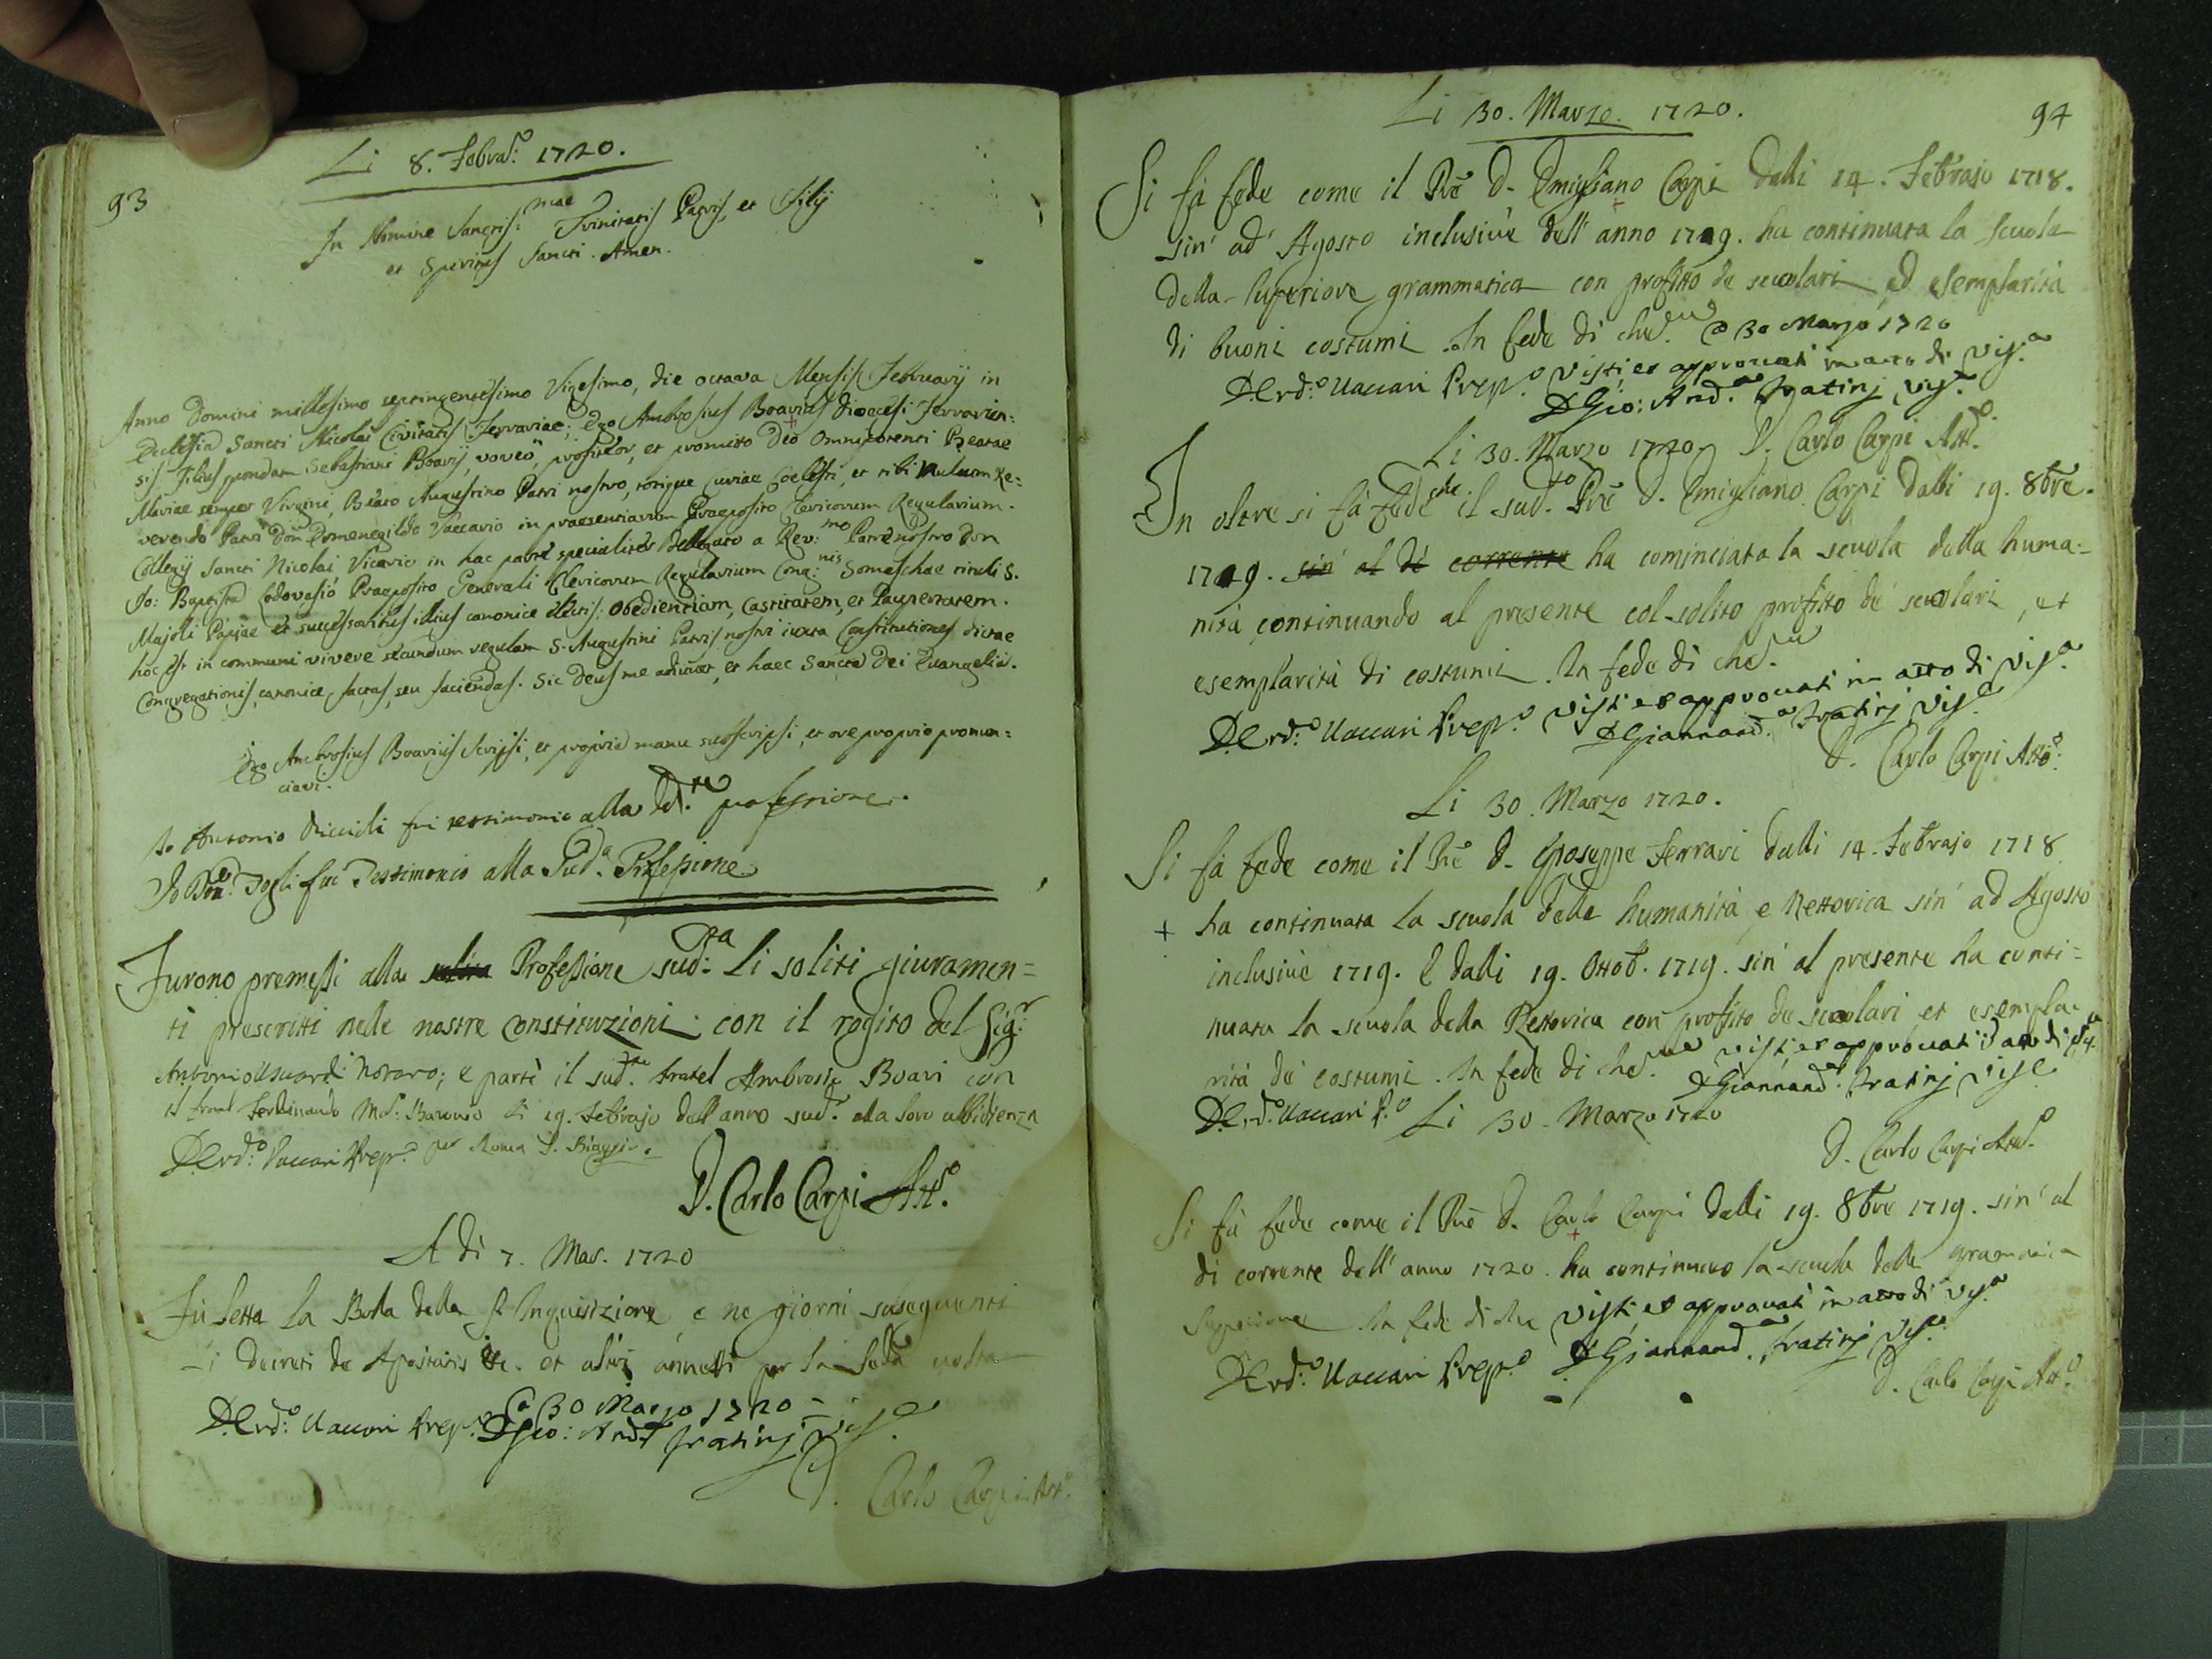 93
Li 8. Febrar.o 1720.
In Nomine Sanctis:mae Trinitatis Patris, et Filij
et Spiritus Sancti. Amen.
Anno Domini millesimo septingentesimo Vigesimo, die octava Mensis Februarij in
Ecclesia Sancti Nicolai Civitatis Ferrariae; Ego Ambrosius Boavius Dioecesi Ferrarien=
sis Filius quondam Sebastiani Boavij, voveo, profiteor, et promitto Deo Omnipotenti Beatae
Mariae semper Virgini, Beato Augustino Patri nostro, totique curiae Coelesti, et tibi Multum Re=
verendo Patri Don Ermenegildo Vaccario in praesentiarum Praeposito Clericorum Regularium
Collegij Sancti Nicolai Vicario in hac parte specialiter Dellegato a Rev:mo Patre nostro Don
Jo: Baptista Lodovasio Praeposito Generali Clericorum Regularium Cong:nis Somaschae tituli S.
Majoli Papiae et successoribus illius canonice electis: Obedientiam, Castitatem, et Paupertatem.
hoc est in communi vivere secundum regulam S. Augustini Patris nostri iuxta Constitutiones dictae
Congregationis, canonice factas, seu faciendas. Sic Deus me adiuvet, et haec Sancta Dei Evangelia.
Ego Ambrosius Boavius Scripsi, et propria manu subscripsi, et ore proprio pronun=
ciavi.
Io Antonio Riccieli fui testimonio alla sud.ta professione.
Io Fogli fui Testimonio alla Sud.a Professione
Furono premessi alla solita Professione sud:ta li soliti giuramen=
ti prescritti nelle nostre Constituzioni con il rogito del Sig:r
Antonio Usuardi Notaro; e partì il sud.to fratel Ambrosio Boavi con
il fratel Ferdinando M.a: Baronio li 19. Febrajo dell'anno sud.o alla loro ubbidienza
D. Erd:o Vaccari Prep.o per Roma S. Biaggio.
D. Carlo Carpi Att.o
A dì 7. Mar. 1720
Fù letta la Bolla della S. Inquisizione e ne giorni susseguenti
i Decreti de Apostatis etc. et altri annessi per la
D. Erd:o Vaccari Prep.o
a 30 Marzo 1720
D Gio: And.a Fratinj Vis.e
D. Carlo Carpi Att.o
94
Li 30. Marzo. 1720.
Si fà fede come il Pre D. Emigliano Carpi dalli 14. Febrajo 1718.
sin' ad' Agosto inclusivè dell'anno 1719. ha continuata la scuola
della superiore grammatica con profitto de scuolari ed esemplarità
di buoni costumi. In fede di che.
a 30 Marzo 1720
D. Erd:o Vaccari Prep.o Visti, et approuati in atto di Vis.a
D Gio: And.a Fratinj Vis.e
Li 30. Marzo 1720 D. Carlo Carpi Att.o
In oltre si fà fede che il sud.to Pre D. Emigliano Carpi dalli 19. 8bre.
1719. sin' al dì corrente ha cominciata la scuola della huma=
nità continuando al presente col solito profitto de' scuolari, et
esemplarità di costumi. In fede di che.
D. Erd:o Vaccari Prep.o Visti et approuati in atto di Vis.a
D Giannand.a Fratinj Vis.e
D. Carlo Carpi Atto:
Li 30. Marzo 1720.
Si fà fede come il Pre D. Gioseppe Ferrari dalli 14. Febrajo 1718
+ ha continuata la scuola della humanità e Rettorica sin' ad Agosto
inclusivè 1719. E dalli 19. Ottob. 1719. sin' al presente ha conti=
nuata la scuola della Rettorica con profitto de scuolari et esempla=
rità de' costumi. In fede di che. Visti et approuati in atto di Vis.a
D Giannand.a Fratinj Vis.e
D. Erd:o Vaccari P.o Li 30. Marzo 1720
D. Carlo Carpi Att.o
Si fà fede come il Pre D. Carlo Carpi dalli 19. 8bre 1719. sin' al
dì corrente dell'anno 1720. ha continuato la scuola della gramatica
Superiore. In fede di che Visti, et approuati in atto di Vis.a
D. Erd:o Vaccari Prep.o D Giannand.a Fratinj Vis.e
D. Carlo Carpi Att.o